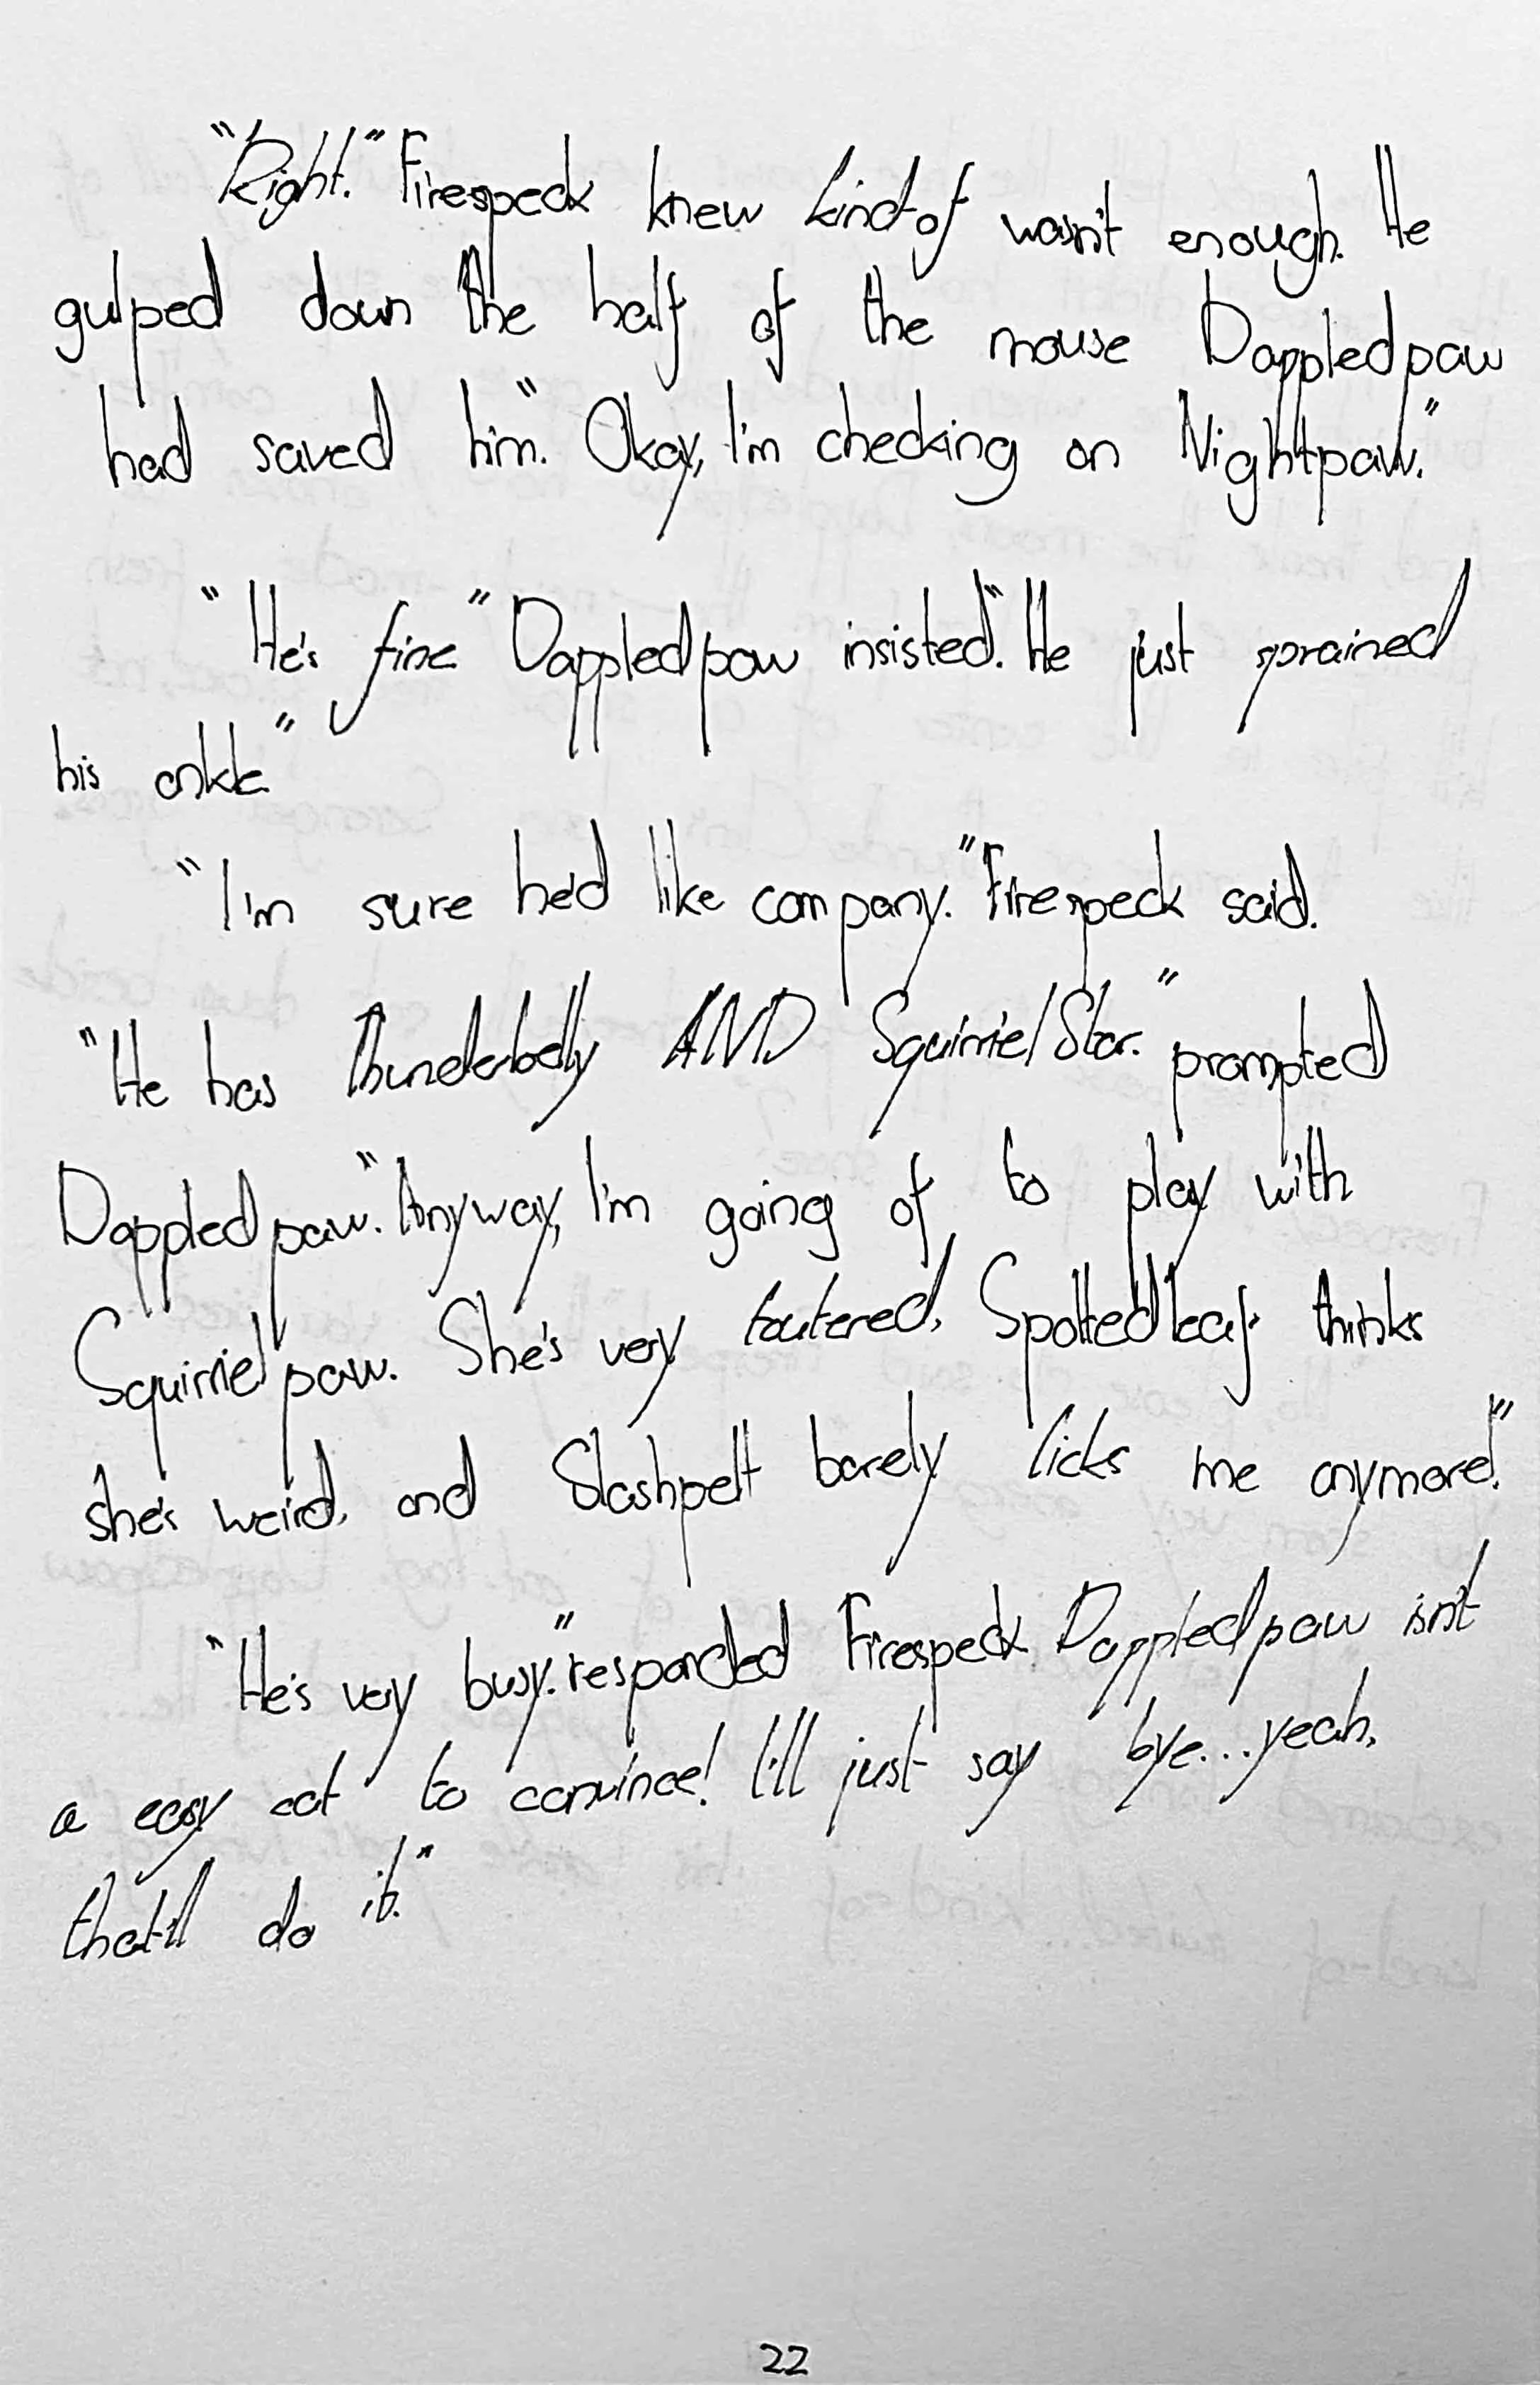 "Right." Firespeck knew kind-of wasn't enough. He
gulped down the half of the mouse Dappledpaw
had saved him. "Okay, I'm checking on Nightpaw."
"He's fine" Dappledpaw insisted. "He just sprained
his ankle"
"I'm sure he'd like company." Firespeck said.
"He has Thunderbelly AND SquirrielStar." prompted
Dappledpaw. "Anyway, I'm going of to play with
Squirrielpaw. She's very toutered, Spottedleaf thinks
she's weird, and Slashpelt barely licks me anymore!"
"He's very busy." responded Firespeck. Dappledpaw isn't
a easy cat to convince! I'll just say bye...yeah,
that'll do it."
22